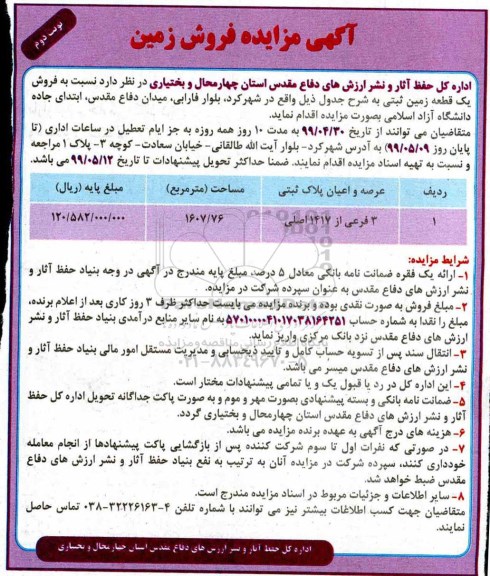 نوبت دوم
آگهی مزایده فروش زمین
اداره کل حفظ آثار و نشر ارزش های دفاع مقدس استان چهارمحال و بختیاری در نظر دارد نسبت به فروش
یک قطعه زمین ثبتی به شرح جدول ذیل واقع در شهرکرد، بلوار فارابی، میدان دفاع مقدس، ابتدای جاده
دانشگاه آزاد اسلامی بصورت مزایده اقدام نماید.
متقاضیان می توانند از تاریخ ۹۹/۰۴/۳۰ به مدت ۱۰ روز همه روزه به جز ایام تعطیل در ساعات اداری (تا
پایان روز ۹۹/۰۵/۰۹) به آدرس شهرکرد- بلوار آیت الله طالقانی- خیابان سعادت- کوچه ۳- پلاک ۱ مراجعه
و نسبت به تهیه اسناد مزایده اقدام نمایند. ضمنا حداکثر تحویل پیشنهادات تا تاریخ ۹۹/۰۵/۱۲ می باشد.
ردیف عرصه و اعیان پلاک ثبتی مساحت (مترمربع) مبلغ پایه (ریال)
۱ ۳ فرعی از ۱۴۱۷ اصلی ۱۶۰۷/۷۶ ۱۲۰/۵۸۲/۰۰۰/۰۰۰
شرایط مزایده:
۱- ارائه یک فقره ضمانت نامه بانکی معادل ۵ درصد مبلغ پایه مندرج در آگهی در وجه بنیاد حفظ آثار و
نشر ارزش های دفاع مقدس به عنوان سپرده شرکت در مزایده.
۲- مبلغ فروش به صورت نقدی بوده و برنده مزایده می بایست حداکثر ظرف ۳ روز کاری بعد از اعلام برنده،
مبلغ را نقدا به شماره حساب ۵۷۰۱۰۰۰۰۴۱۰۱۷۰۳۸۱۶۴۲۵۱ به نام سایر منابع درآمدی بنیاد حفظ آثار و نشر
ارزش های دفاع مقدس نزد بانک مرکزی واریز نماید.
۳- انتقال سند پس از تسویه حساب کامل و تایید ذیحسابی و مدیریت مستقل امور مالی بنیاد حفظ آثار و
نشر ارزش های دفاع مقدس میسر می باشد.
۴- این اداره کل در رد یا قبول یک و یا تمامی پیشنهادات مختار است.
۵- ضمانت نامه بانکی و بسته پیشنهادی بصورت مهر و موم و به صورت پاکت جداگانه تحویل اداره کل حفظ
آثار و نشر ارزش های دفاع مقدس استان چهارمحال و بختیاری گردد.
۶- هزینه های درج آگهی به عهده برنده مزایده می باشد.
۷- در صورتی که نفرات اول تا سوم شرکت کننده پس از بازگشایی پاکت پیشنهادها از انجام معامله
خودداری کنند، سپرده شرکت در مزایده آنان به ترتیب به نفع بنیاد حفظ آثار و نشر ارزش های دفاع
مقدس ضبط خواهد شد.
۸- سایر اطلاعات و جزئیات مربوط در اسناد مزایده مندرج است.
متقاضیان جهت کسب اطلاعات بیشتر نیز می توانند با شماره تلفن ۴-۳۲۲۲۶۱۶۳-۰۳۸ تماس حاصل
نمایند.
اداره کل حفظ آثار و نشر ارزش های دفاع مقدس استان چهارمحال و بختیاری